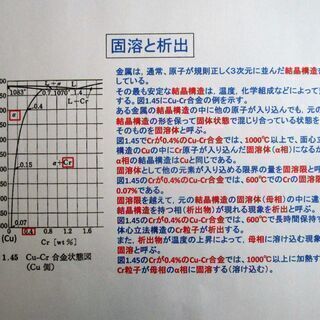 固溶と析出
金属は、通常、原子が規則正しく3次元に並んだ結晶構造
その最も安定な結晶構造は、温度、化学組成などによって変
する。図1.45にCu-Cr合金の例を示す。
ある金属の結晶構造の中に他の原子が入り込んでも、元の
結晶構造の形を保って固体状態で混じり合っている状態を
そのものを固溶体と呼ぶ。
図1.45のCrが0.4%のCu-Cr合金では、1000℃以上で、面心立
構造のCuの中にCr原子が入り込んだ固溶体(α相)になるが
α相の結晶構造はCuと同じである。
固溶体として他の元素が入り込める限界の量を固溶限と呼
図1.45のCrが0.4%のCu-Cr合金では、600℃でのCrの固溶限
0.07%である。
固溶限を越えて、元の結晶構造の固溶体(母相)の中に違
結晶構造を持つ相(析出物)が現れる現象を析出と呼ぶ。
図1.45のCrが0.4%のCu-Cr合金では、600℃で長時間保持
体心立方構造のCr粒子が析出する。
また、析出物が温度の上昇によって、母相に溶け込む現象
固溶と呼ぶ。
図1.45のCrが0.4%のCu-Cr合金では、1000℃以上に加熱す
Cr粒子が母相のα相に固溶する(溶け込む)。
L+α
L
1083°
0.7
1070°
1.4
L+Cr
0.4
α
0.15
α+Cr
0.07
(Cu)
0.4
0.8
1.2
1.6
Cr [wt %]
1.45 Cu-Cr 合金状態図
(Cu 側)